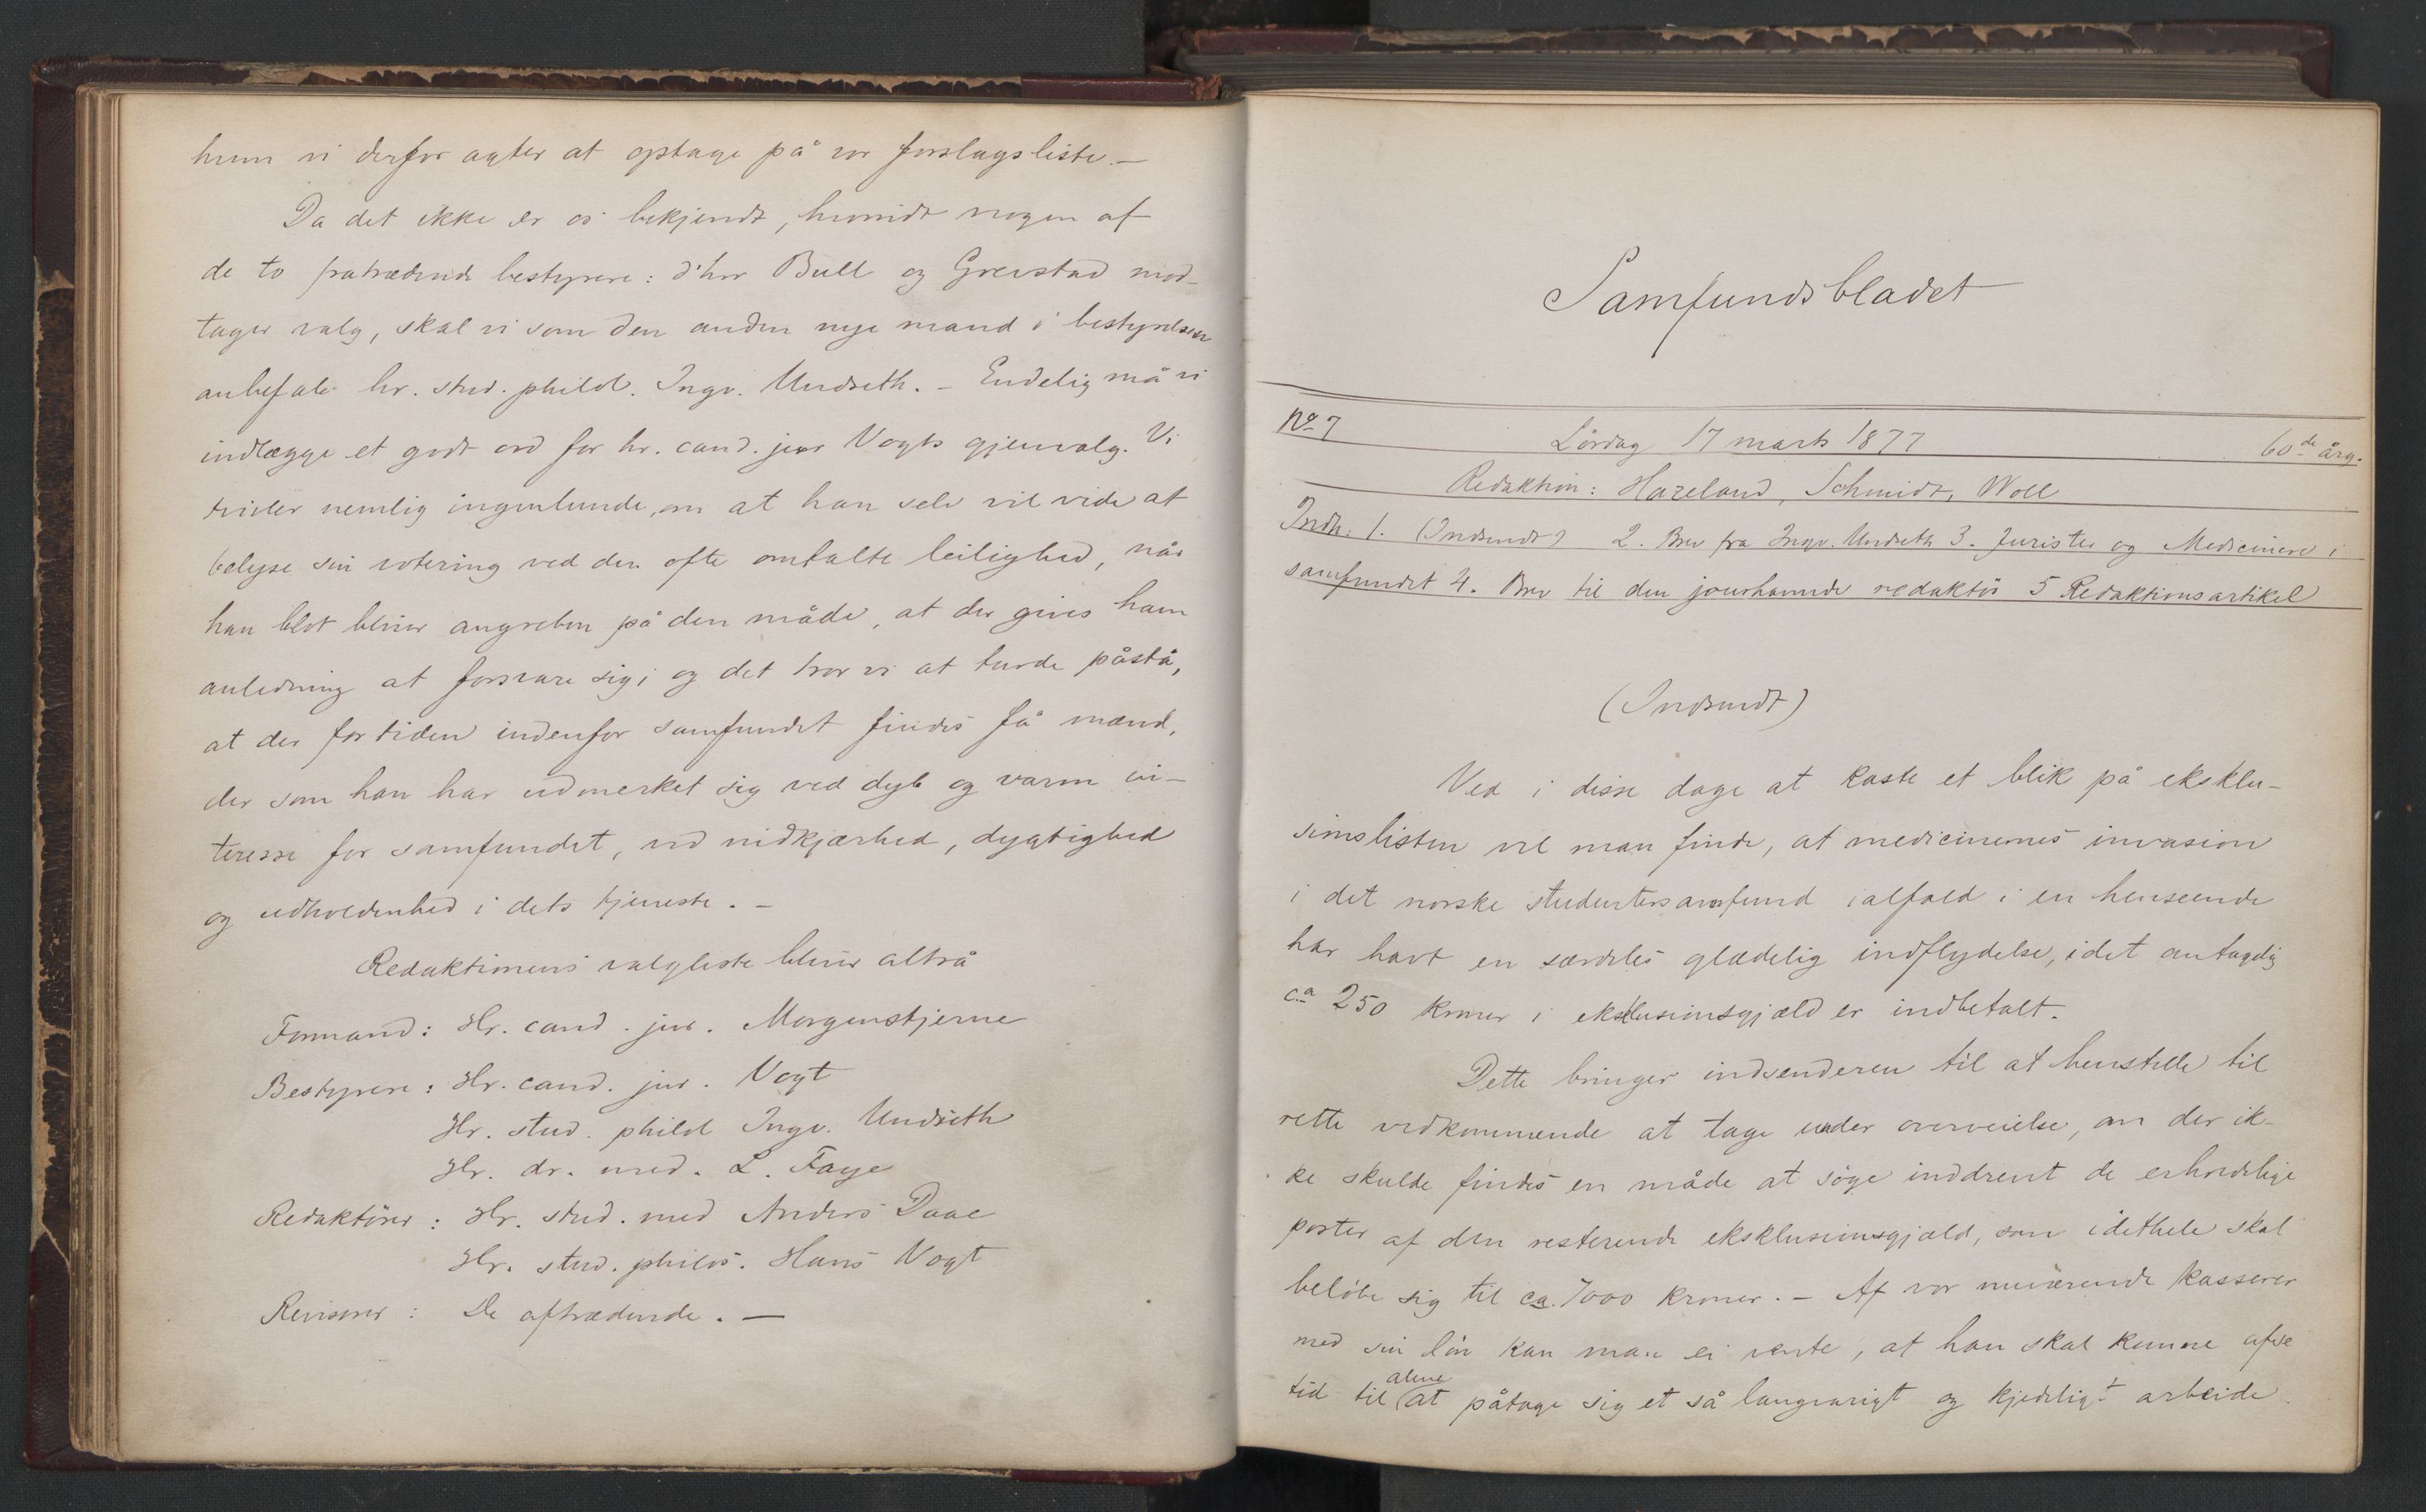 hvem vi derfor agter at optage på vor forslagsliste. —
Da det ikke er os bekjendt, hvorvidt nogen af
de to fratrædende bestyrere: d'hrr Bull og Grevstad mod-
tager valg, skal vi som den anden nye mand i bestyrelsen
anbefale hr. stud. philol. Ingv. Undseth. – Endelig må vi
indlægge et godt ord for hr. cand. jur Vogts gjenvalg. Vi
tvivler nemlig ingenlunde, om at han selv vil vide at
belyse sin votering ved den ofte omtalte leilighed, når
han blot bliver angreben på den måde, at der gives ham
anledning at forsvare sig; og det tror vi at turde påstå,
at der for tiden indenfor samfundet findes få mænd,
der som han har udmerket sig ved dyb og varm in-
teresse for samfundet, ved nidkjærhed, dygtighed
og udholdenhed i dets tjeneste. –
Redaktionens valgliste bliver altså
Formand: Hr. cand. jur. Morgenstjerne
Bestyrere: Hr. cand. jur. Vogt
Hr. stud. philol Ingv. Undseth
Hr. dr. med. L. Faye
Redaktører: Hr. stud. med Anders Daae
Hr. stud. philos. Hans Vogt
Revisorer: De aftrædende. —
Samfundsbladet
No 7 Lørdag 17 marts 1877 60de årg.
Redaktion: Hazeland, Schmidt, Woll
Indh: 1. (Indsendt) 2. Brev fra Ingv. Undseth 3. Jurister og Medicinere i
samfundet 4. Brev til den jourhavende redaktør 5 Redaktionsartikel
(Indsendt)
Ved i disse dage at kaste et blik på eksklu-
sionslisten vil man finde, at medicinernes invasion
i det norske studentersamfund ialfald i en henseende
har havt en særdeles glædelig indflydelse, idet antagelig
ca 250 kroner i eksklusionsgjæld er indbetalt.
Dette bringer indsenderen til at henstille til
rette vedkommende at tage under overveielse, om der ik-
ke skulde findes en måde at søge inddrevet de erholdelige
poster af den resterende eksklusionsgjæld, som idethele skal
beløbe sig til ca. 7000 kroner. – Af vor nuværende kasserer
med sin løn kan man ei vente, at han skal kunne afse
tid til alene at påtage sig et så langvarigt og kjedeligt arbeide.